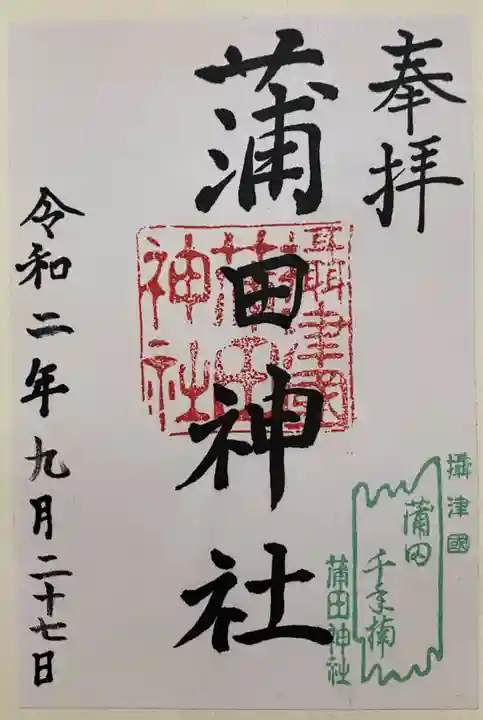 奉拝
蒲田神社
攝津國
蒲田
神社
令和二年九月二十七日
攝津國
蒲田
千年楠
蒲田神社